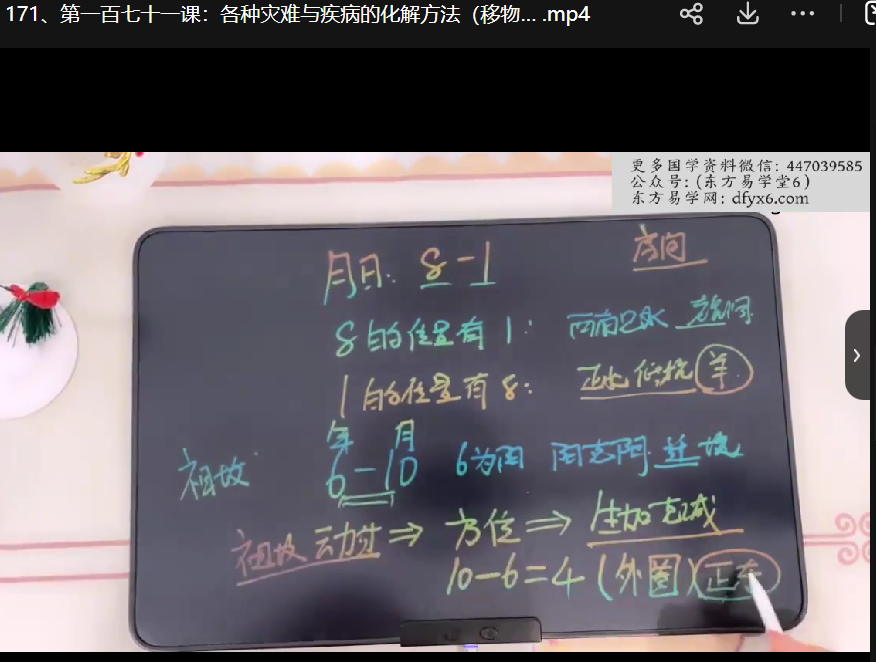 171、第一百七十一课：各种灾难与疾病的化解方法（移物... .mp4
更多国学资料微信：447039585
公众号：(东方易学堂6)
东方易学网：dfyx6.com
方向
月日: 8-1
8的位置有1: 西南
1的位置有8: 正北 羊
年 月
祖坟 6-10 6为阴
祖坟动过⇒方位⇒生加克减
10-6=4(外圈)正东